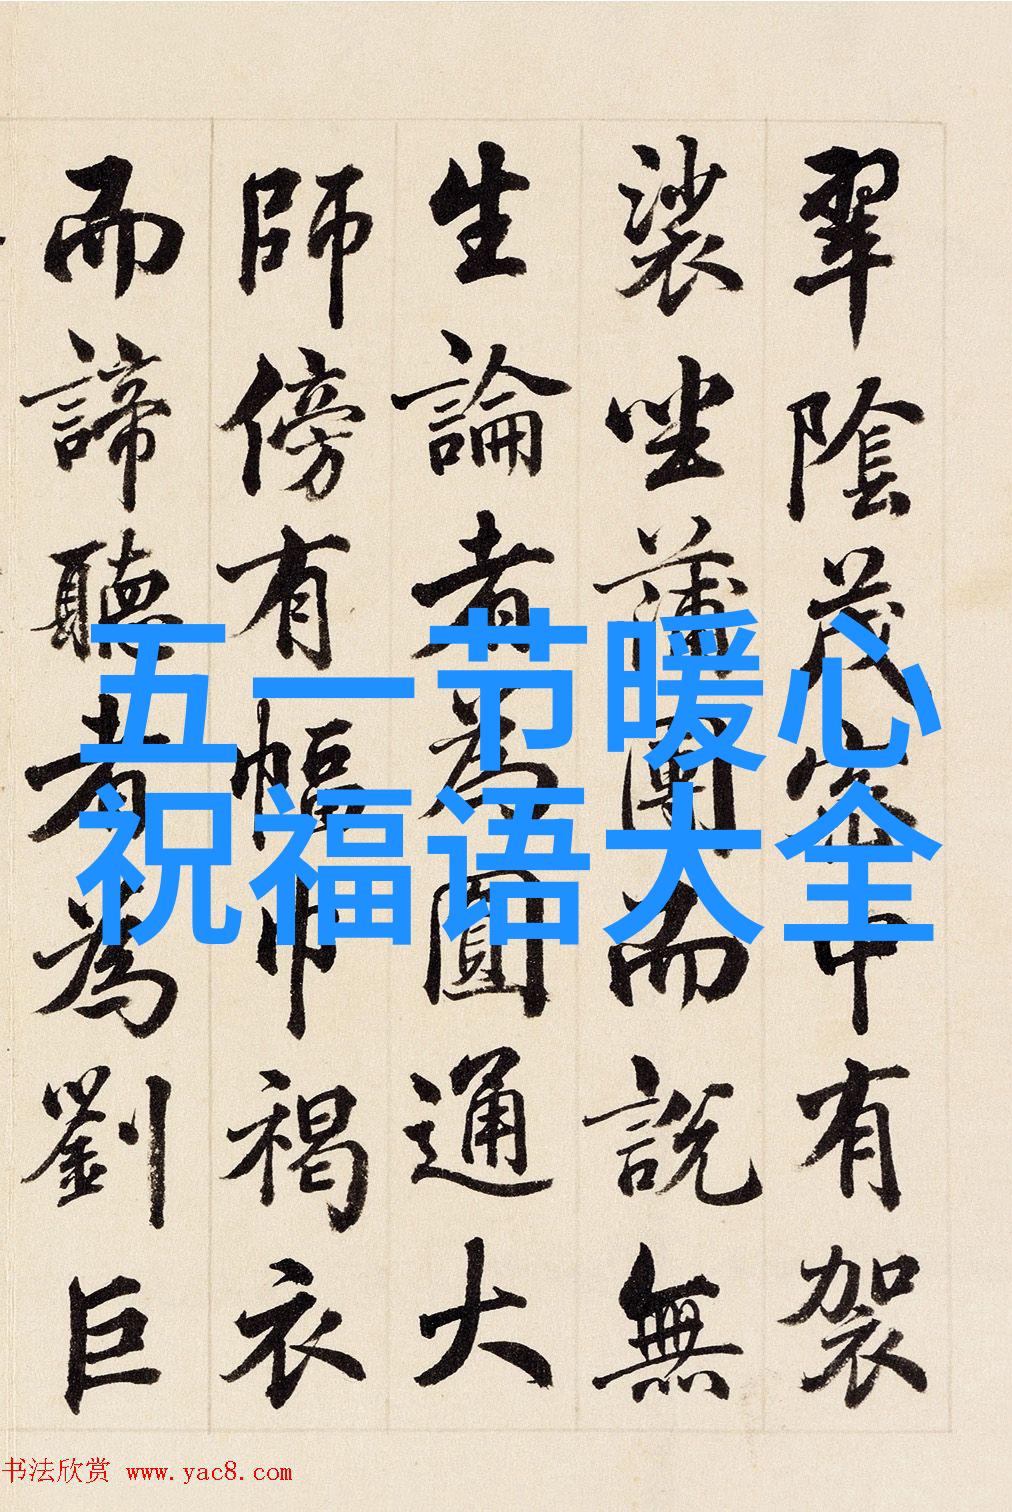 翠陰茂密中有袈
裟坐蒲團而說無
生論者為圓通大
師傍有幅巾褐衣
而諦聽者為劉巨
五一节暖心
祝福语大全
书法欣赏 www.yac8.com